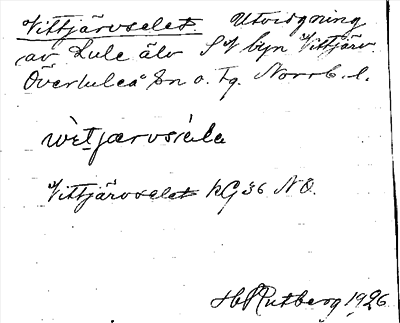 Vittjärvselet. Utvidgning
av Lule älv SV byn Vittjärv
Överluleå Sn o. Tg. Norrb. l.
wètjærvsèla
Vittjärvselet KG 36 NO.
H Rutberg 1926